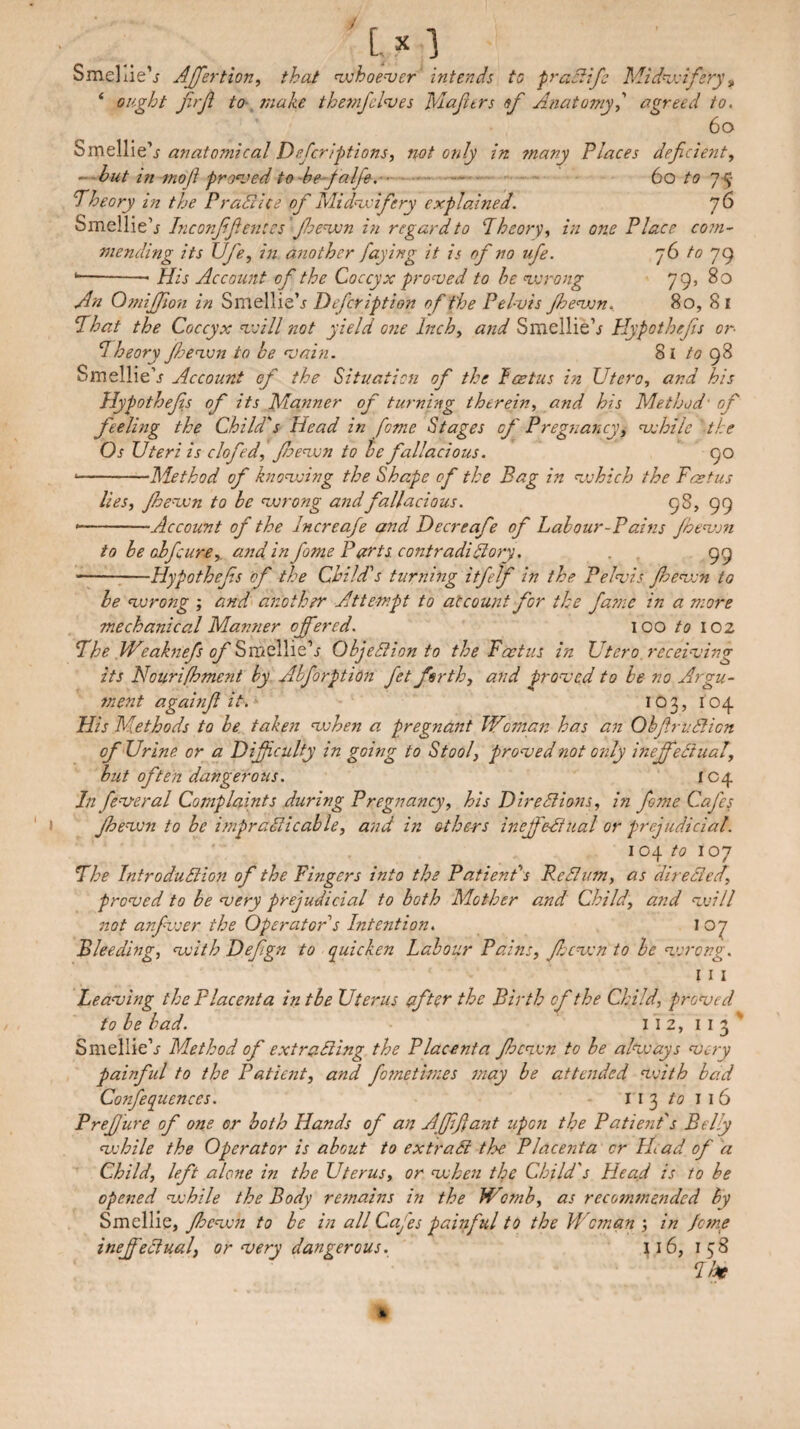 [ x ]
Smellie's Aſſertion, that whoever intends to practiſe Midwifery,
‘ ought firſt to make themſelves Maſters of Anatomy,’ agreed to.
60
Smellie's anatomical Deſcriptions, not only in many Places deficient,
but in moſt proved to be falſe. 60 to 75
Theory in the Practice of Midwifery explained. 76
Smellie's Inconſiſtentes ſhewn in regard to Theory, in one Place com-
mending its Uſe, in another ſaying it is of no uſe. 76 to 79
——— His Account of the Coccyx proved to be wrong 79, 80
An Omiſſion in Smellie's Deſcription of the Pelvis ſhewn. 80, 81
That the Coccyx will not yield one Inch, and Smellie's Hypotheſis or
Theory ſhewn to be vain. 81 to 98
Smellie's Account of the Situation of the Fœtus in Utero, and his
Hypotheſis of its Manner of turning therein, and his Method of
feeling the Child's Head in ſome Stages of Pregnancy, while the
Os Uteri is cloſed, ſhewn to be fallacious. 90
———Method of knowing the Shape of the Bag in which the Fœtus
lies, ſhewn to be wrong and fallacious. 98, 99
———Account of the Increaſe and Decreaſe of Labour-Pains ſhewn
to be obſcure, and in ſome Parts contradictory. 99
———Hypotheſis of the Child's turning itſelf in the Pelvis ſhewn to
be wrong ; and another Attempt to account for the ſame in a more
mechanical Manner offered. 100 to 102
The Weakneſs of Smellie's Objection to the Fœtus in Utero receiving
its Nouriſhment by Abſorption ſet forth, and proved to be no Argu-
ment againſt it. 103, 104
His Methods to be taken when a pregnant Woman has an Obſtruction
of Urine or a Difficulty in going to Stool, proved not only ineffectual,
but often dangerous. 104
In ſeveral Complaints during Pregnancy, his Directions, in ſome Caſes
ſhewn to be impracticable, and in others ineffectual or prejudicial.
104 to 107
The Introduction of the Fingers into the Patient's Rectum, as directed,
proved to be very prejudicial to both Mother and Child, and will
not anſwer the Operator's Intention. 107
Bleeding, with Deſign to quicken Labour Pains, ſhewn to be wrong.
111
Leaving the Placenta in the Uterus after the Birth of the Child, proved
to be bad. 112, 113
Smellie's Method of extracting the Placenta ſhewn to be always very
painful to the Patient, and ſometimes may be attended with bad
Conſequences. 113 to 116
Preſſure of one or both Hands of an Aſſiſtant upon the Patient's Belly
while the Operator is about to extract the Placenta or Head of a
Child, left alone in the Uterus, or when the Child's Head is to be
opened while the Body remains in the Womb, as recommended by
Smellie, ſhewn to be in all Caſes painful to the Woman ; in ſome
ineffectual, or very dangerous. 116, 158
The